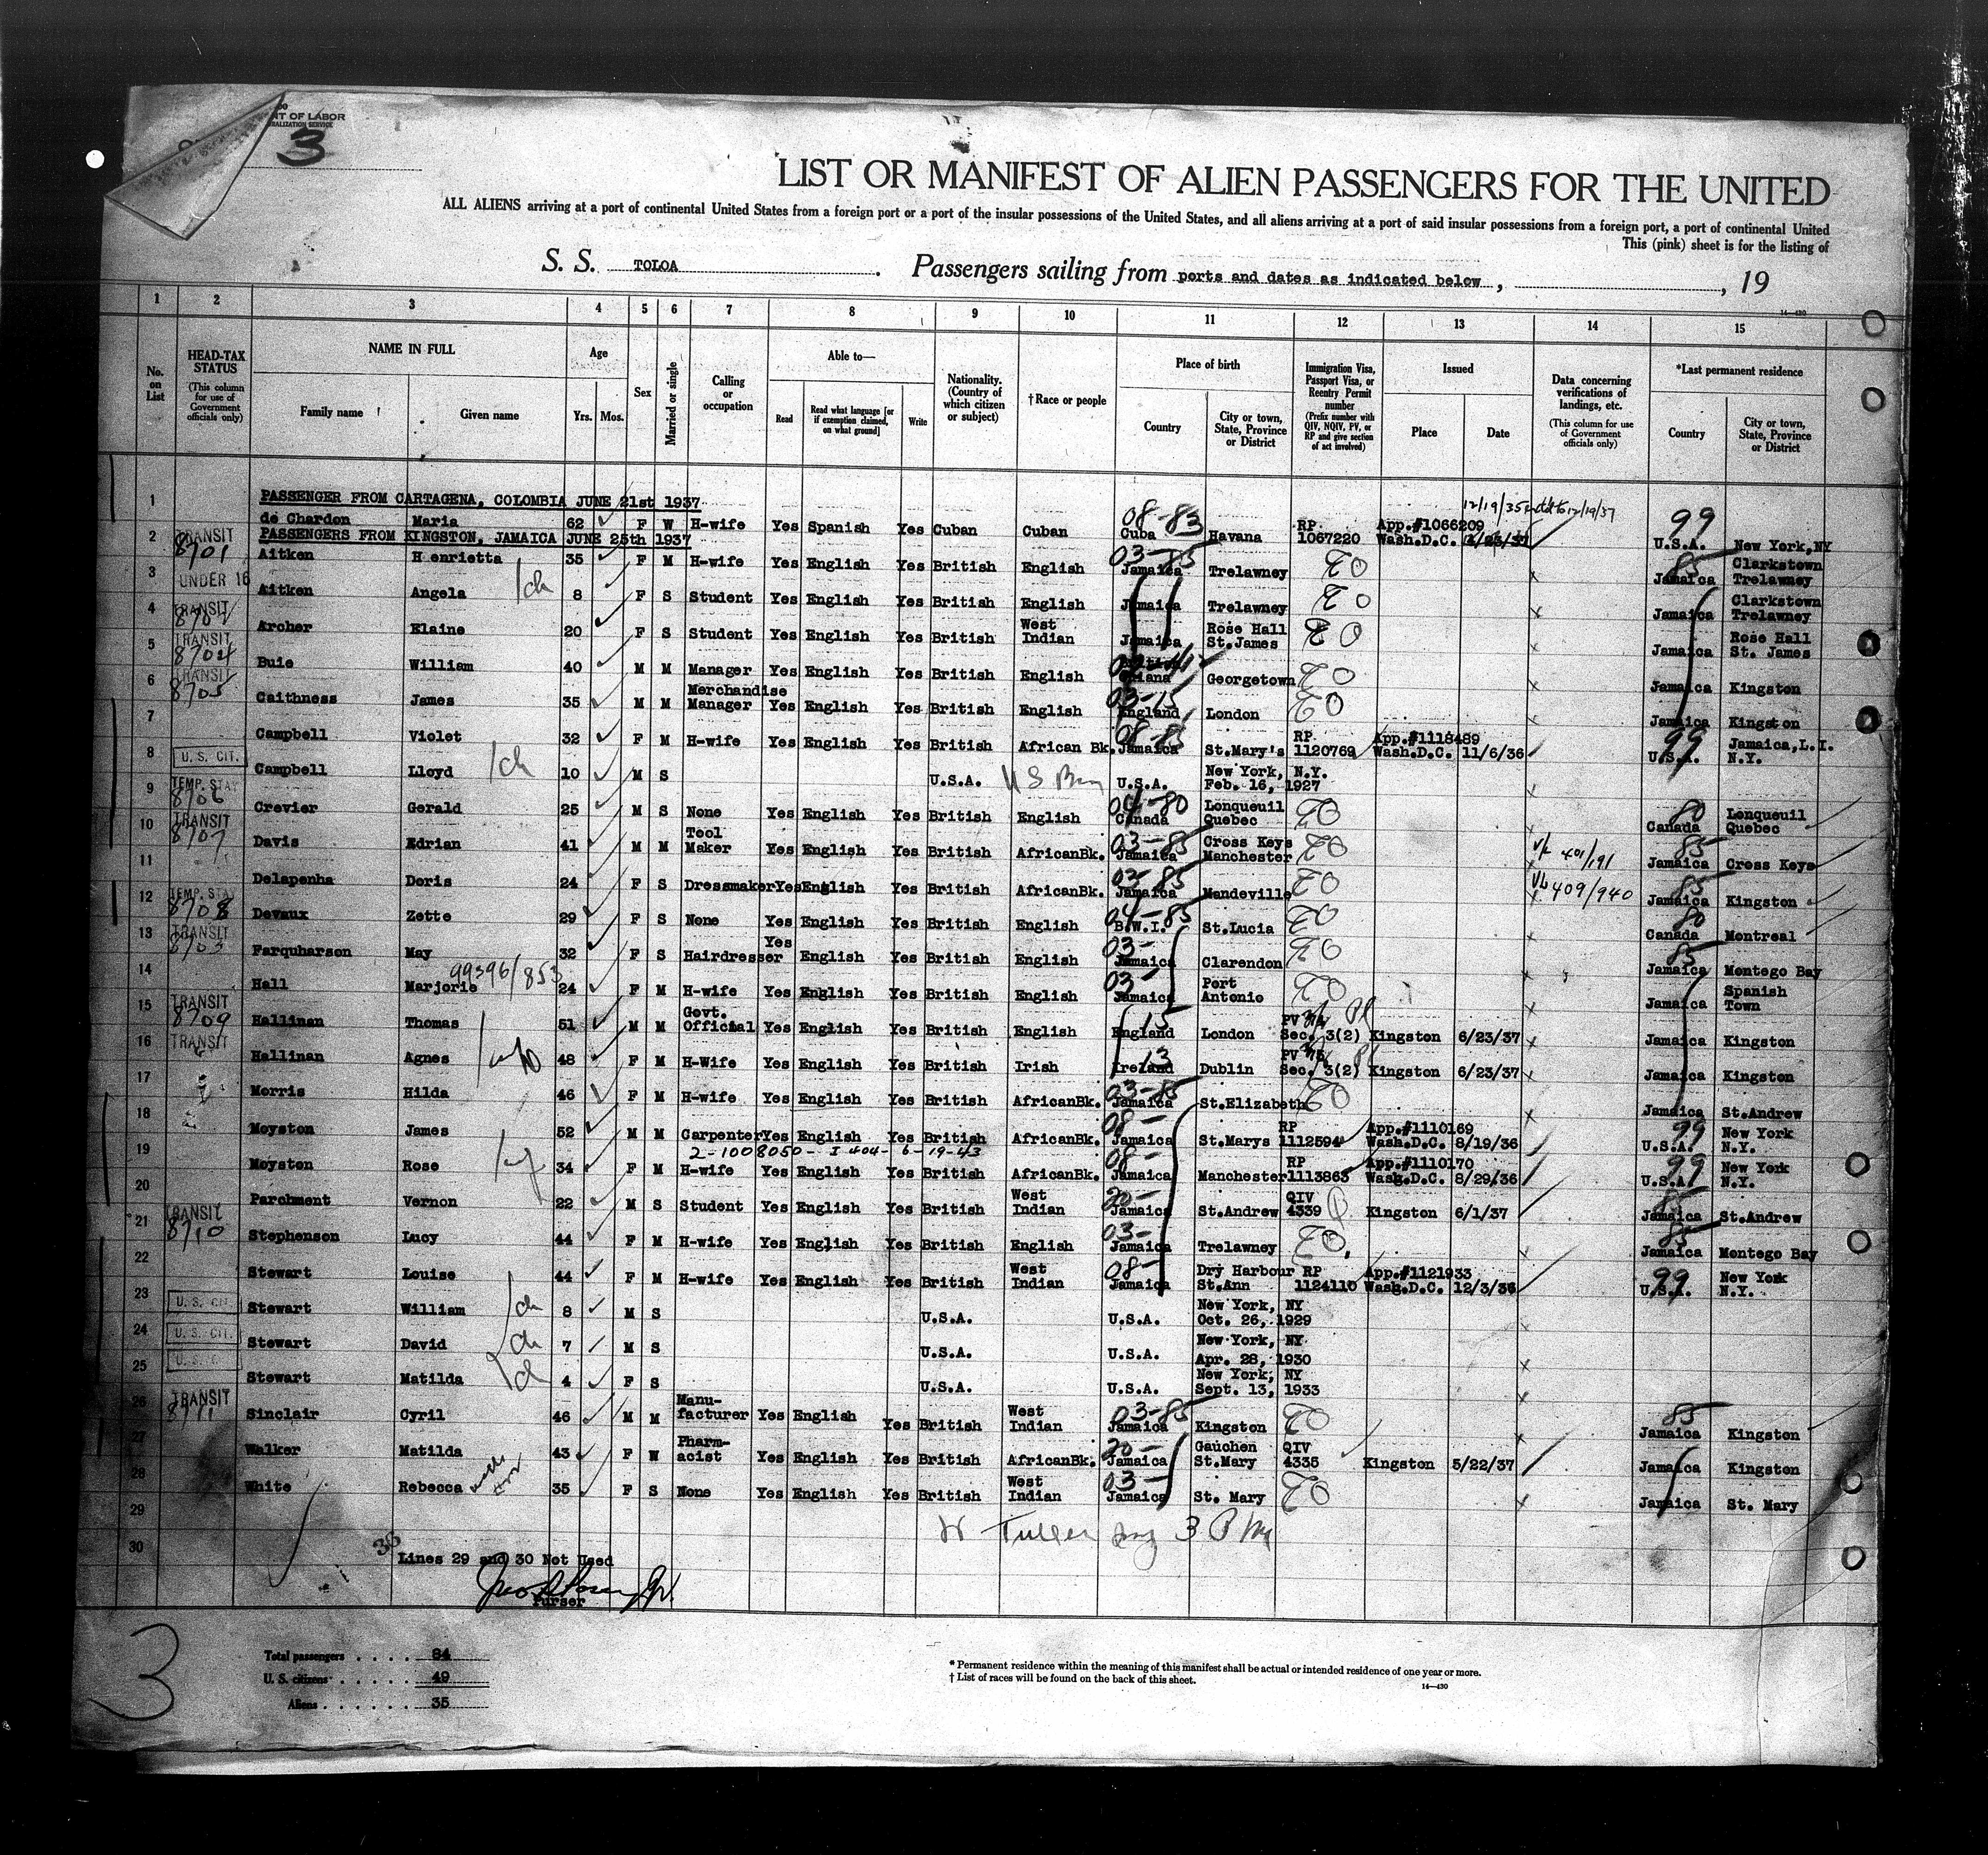 NT OF LABOR
ALIZATION SERVICE
3
LIST OR MANIFEST OF ALIEN PASSENGERS FOR THE UNITED
ALL ALIENS arriving at a port of continental United States from a foreign port or a port of the insular possessions of the United States, and all aliens arriving at a port of said insular possessions from a foreign port, a port of continental United
This (pink) sheet is for the listing of
S. S. TOLOA. Passengers sailing from ports and dates as indicated below, , 19
14—430
1 2 3 4 5 6 7 8 9 10 11 12 13 14 15
No. on List
HEAD-TAX STATUS (This column for use of Government officials only)
NAME IN FULL
Family name Given name
Age
Yrs. Mos.
Sex
Married or single
Calling or occupation
Able to—
Read Read what language [or if exemption claimed, on what ground] Write
Nationality. (Country of which citizen or subject)
†Race or people
Place of birth
Country City or town, State, Province or District
Immigration Visa, Passport Visa, or Reentry Permit number (Prefix number with QIV, NQIV, PV, or RP and give section of act involved)
Issued
Place Date
Data concerning verifications of landings, etc. (This column for use of Government officials only)
*Last permanent residence
Country City or town, State, Province or District
PASSENGER FROM CARTAGENA, COLOMBIA JUNE 21st 1937
1 de Chardon Maria 62 F W H-wife Yes Spanish Yes Cuban Cuban 08-83 Cuba Havana RP 1067220 App.#1066209 Wash.D.C. 12/19/35 12/19/37 99 U.S.A. New York, NY
PASSENGERS FROM KINGSTON, JAMAICA JUNE 25th 1937
2 TRANSIT 8701 Aitken Henrietta 35 F M H-wife Yes English Yes British English 03-85 Jamaica Trelawney 85 Jamaica Clarkstown Trelawney
3 UNDER 16 Aitken Angela 8 F S Student Yes English Yes British English Jamaica Trelawney Jamaica Clarkstown Trelawney
4 TRANSIT 8702 Archer Elaine 20 F S Student Yes English Yes British West Indian Jamaica Rose Hall St.James Jamaica Rose Hall St. James
5 TRANSIT 8704 Buie William 40 M M Manager Yes English Yes British English Guiana Georgetown Jamaica Kingston
6 TRANSIT 8705 Caithness James 35 M M Merchandise Manager Yes English Yes British English 03-15 England London Jamaica Kingston
7 Campbell Violet 32 F M H-wife Yes English Yes British African Bk. 08-85 Jamaica St.Mary's RP 1120769 App.#1118489 Wash.D.C. 11/6/36 99 U.S.A. Jamaica, L.I. N.Y.
8 U. S. CIT. Campbell Lloyd 10 M S U.S.A. U.S.A. New York, N.Y. Feb. 16, 1927
9 TEMP. STAY 8706 Crevier Gerald 25 M S None Yes English Yes British English 04-80 Canada Lonqueuil Quebec 80 Canada Lonqueuil Quebec
10 TRANSIT 8707 Davis Edrian 41 M M Tool Maker Yes English Yes British AfricanBk. 03-85 Jamaica Cross Keys Manchester 401/191 85 Jamaica Cross Keys
11 Delapenha Doris 24 F S Dressmaker Yes English Yes British AfricanBk. 03-85 Jamaica Mandeville 409/940 85 Jamaica Kingston
12 TEMP. STAY 8708 Devaux Zette 29 F S None Yes English Yes British English 04-85 B.W.I. St.Lucia 80 Canada Montreal
13 TRANSIT 8703 Farquharson May 32 F S Hairdresser Yes English Yes British English 03- Jamaica Clarendon 85 Jamaica Montego Bay
14 Hall Marjorie 99396/853 24 F M H-wife Yes English Yes British English 03- Jamaica Port Antonio Jamaica Spanish Town
15 TRANSIT 8709 Hallinan Thomas 51 M M Govt. Official Yes English Yes British English 15 England London PV Sec. 3(2) Kingston 6/23/37 Jamaica Kingston
16 TRANSIT Hallinan Agnes 48 F M H-Wife Yes English Yes British Irish 13 Ireland Dublin PV Sec. 3(2) Kingston 6/23/37 Jamaica Kingston
17 Morris Hilda 46 F M H-wife Yes English Yes British AfricanBk. 03-85 Jamaica St.Elizabeth Jamaica St.Andrew
18 Moyston James 52 M M Carpenter Yes English Yes British AfricanBk. 08- Jamaica St.Marys RP 1112594 App.#1110169 Wash.D.C. 8/19/36 99 U.S.A. New York N.Y.
2-1008050- I 404- 6-19-43
19 Moyston Rose 34 F M H-wife Yes English Yes British AfricanBk. 08- Jamaica Manchester RP 1113863 App.#1110170 Wash.D.C. 8/29/36 99 U.S.A. New York N.Y.
20 Parchment Vernon 22 M S Student Yes English Yes British West Indian 20- Jamaica St.Andrew QIV 4339 Kingston 6/1/37 85 Jamaica St.Andrew
21 TRANSIT 8710 Stephenson Lucy 44 F M H-wife Yes English Yes British English 03- Jamaica Trelawney 85 Jamaica Montego Bay
22 Stewart Louise 44 F M H-wife Yes English Yes British West Indian 08- Jamaica Dry Harbour St.Ann RP 1124110 App.#1121933 Wash.D.C. 12/3/36 99 U.S.A. New York N.Y.
23 U. S. CIT. Stewart William 8 M S U.S.A. U.S.A. New York, NY Oct. 26, 1929
24 U. S. CIT. Stewart David 7 M S U.S.A. U.S.A. New York, NY Apr. 28, 1930
25 U. S. C Stewart Matilda 4 F S U.S.A. U.S.A. New York, NY Sept. 13, 1933
26 TRANSIT 8711 Sinclair Cyril 46 M M Manufacturer Yes English Yes British West Indian 03-85 Jamaica Kingston 85 Jamaica Kingston
27 Walker Matilda 43 F W Pharmacist Yes English Yes British AfricanBk. 20- Jamaica Gauchen St.Mary QIV 4335 Kingston 5/22/37 Jamaica Kingston
28 White Rebecca 35 F S None Yes English Yes British West Indian 03- Jamaica St. Mary Jamaica St. Mary
29
30
Lines 29 and 30 Not Used
Purser
3
Total passengers . . . . 84
U. S. citizens . . . . . 49
Aliens . . . . . 35
* Permanent residence within the meaning of this manifest shall be actual or intended residence of one year or more.
† List of races will be found on the back of this sheet.
14—430